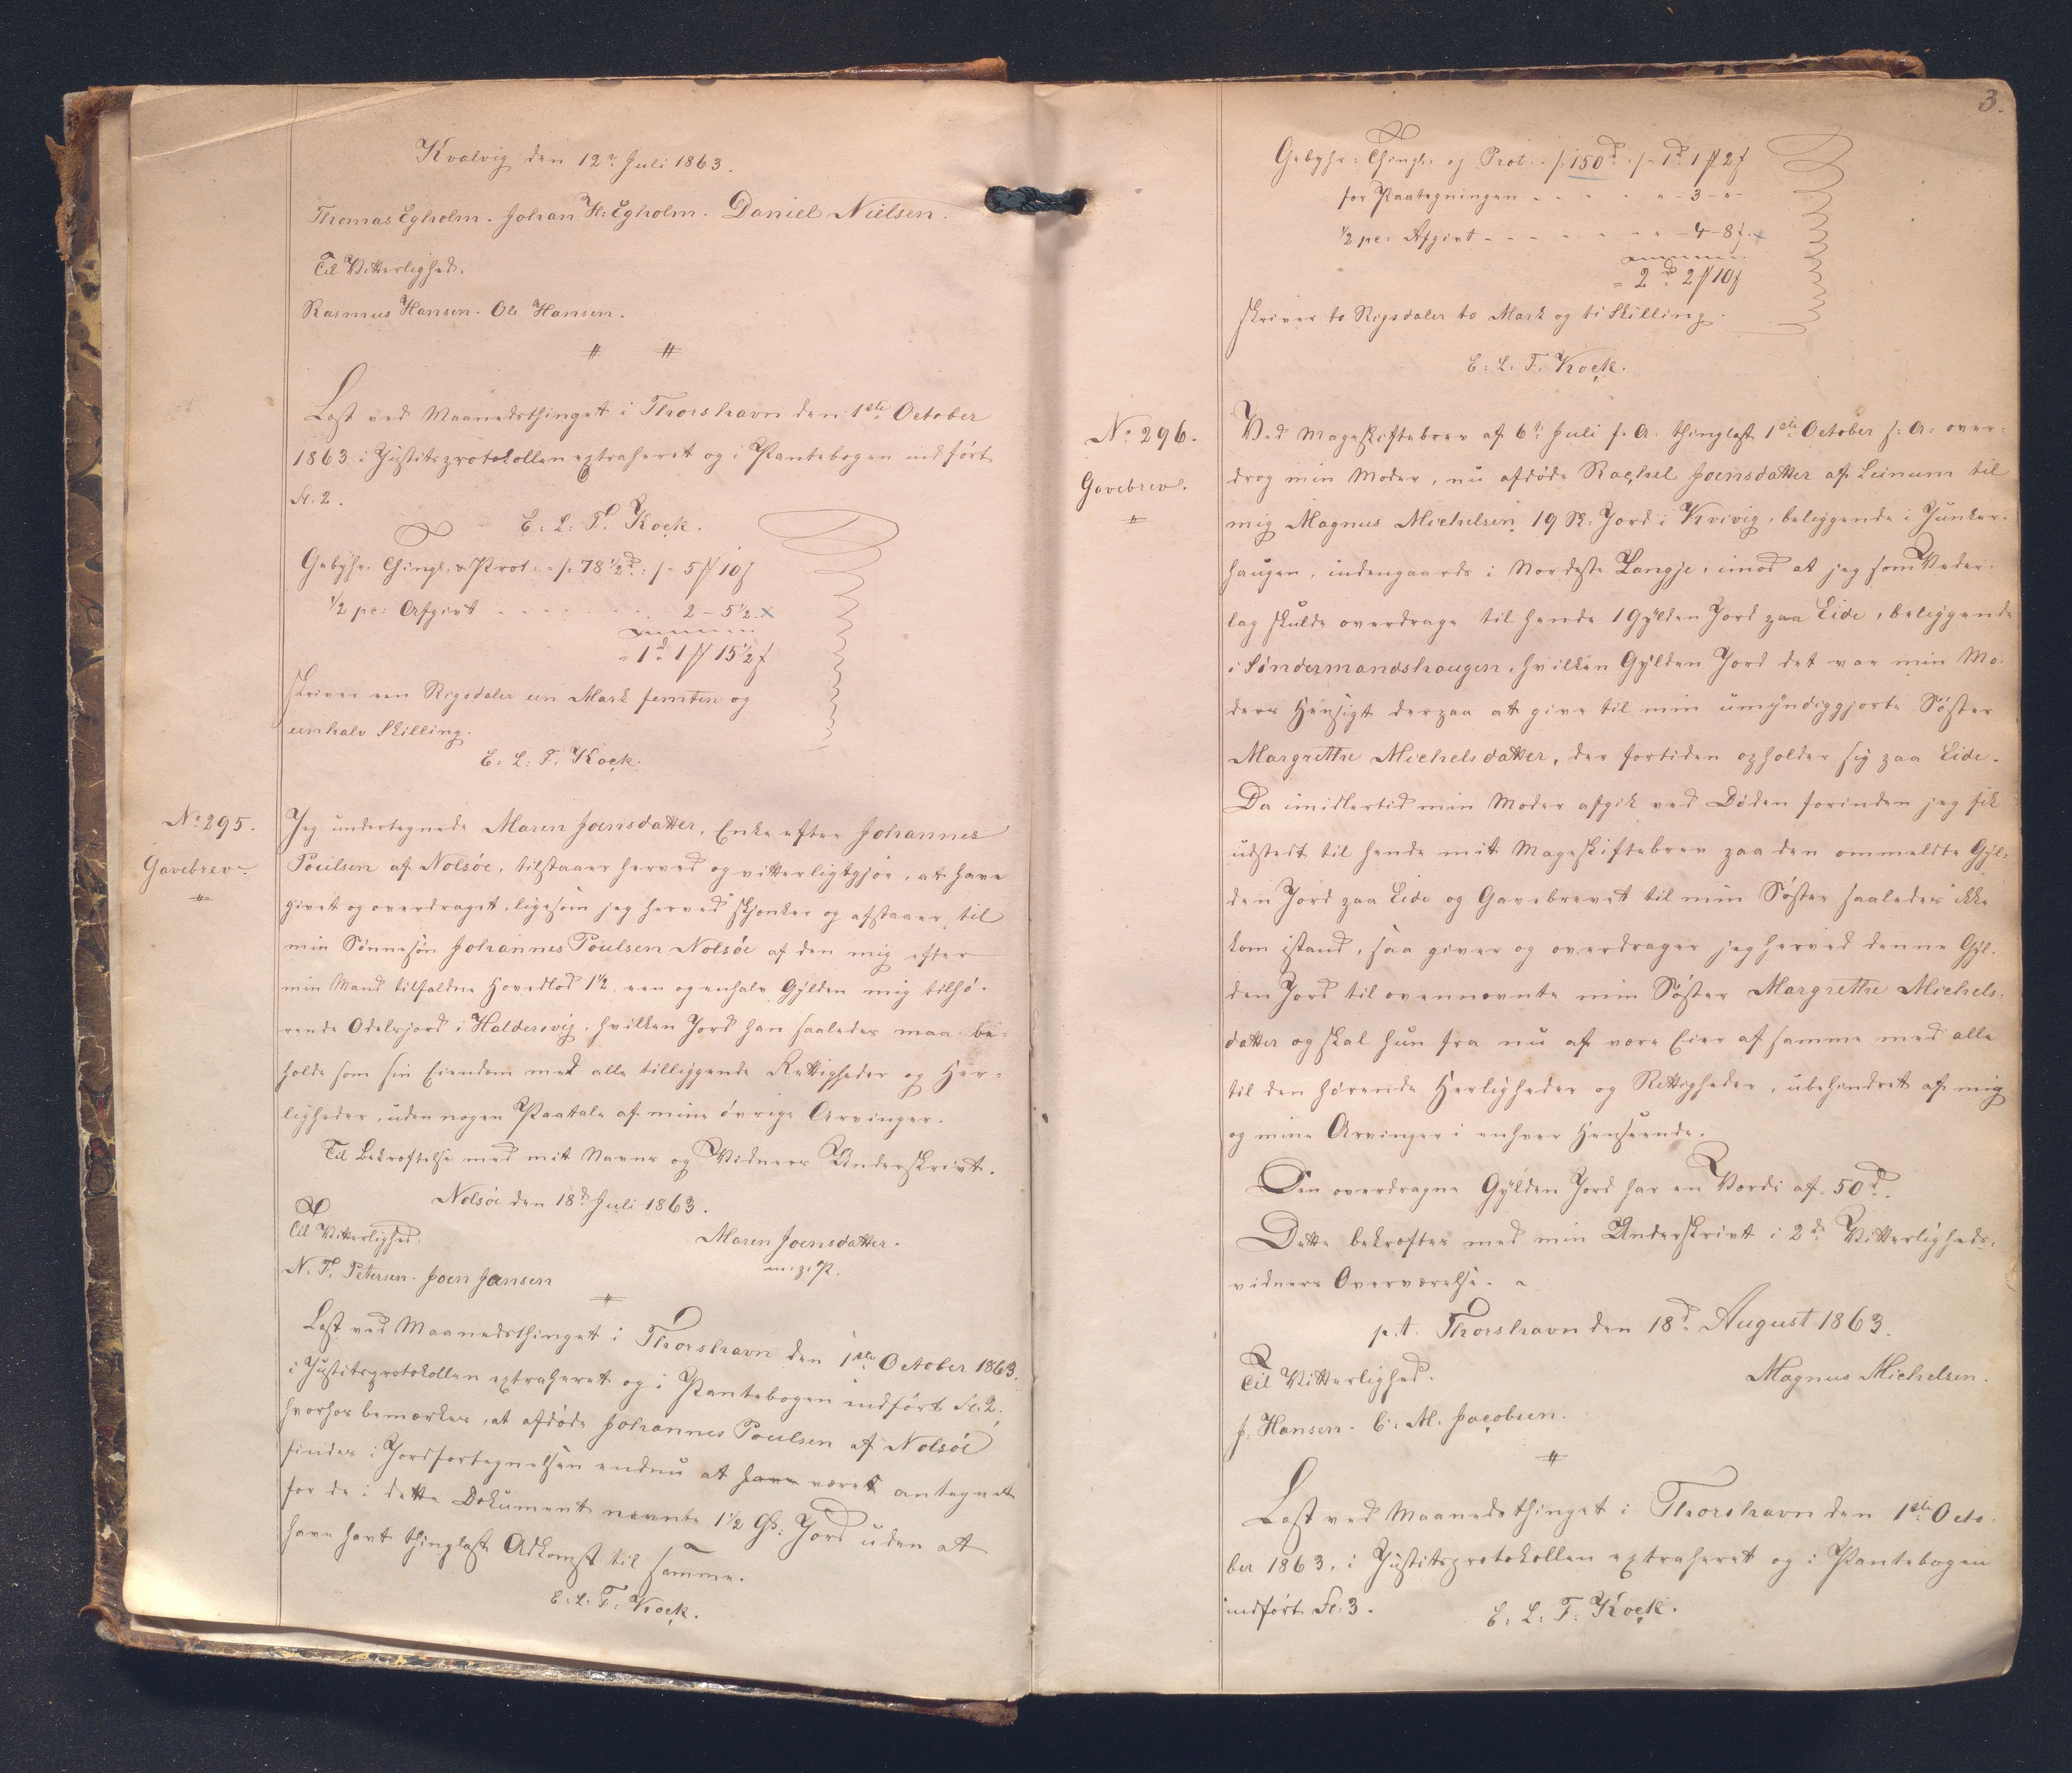 Kvalvig den 12te Juli 1863.
Thomas Egholm. Johan H: Egholm. Daniel Nielsen.
Til Vitterlighed.
Rasmus Hansen. Ole Hansen.
Læst ved Maanedsthinget i Thorshavn den 1ste October
1863 i Justitsprotokollen extraheret og i Pantebogen indført
Fl. 2.
E: L: F. Kock.
Gebyhr. Thingl. & Prot: ./. 78½ d: ./. - 5 ℳ 10 ß
½ pc: Afgivt - - - - - - 2 - 5½.
= 1 d 1 ℳ 15½ ß
skriver een Rigsdaler een Mark femten og
eenhalv Skilling.
E: L: F. Kock
No 295.
Gavebrev.
Jeg undertegnede Maren Joensdatter, Enke efter Johannes
Poulsen af Nolsöe, tilstaaer herved og vitterligtgjör, at have
givet og overdraget, ligesom jeg herved skjenker og afstaaer til
min Sönnesön Johannes Poulsen Nolsöe af den mig efter
min Mand tilfaldne Hovedlod 1½, een og enhalv Gylden mig tilhö-
rende Odelsjord i Haldersvig, hvilken Jord han saaledes maa be-
holde som sin Eiendom med alle tilliggende Rettigheder og Her-
ligheder, uden nogen Paatale af mine övrige Arvinger.
Til Bekræftelse med mit Navns og Vidners Underskrivt.
Nolsöe den 18d Juli 1863.
Til Vitterlighed.
Maren Joensdatter.
m. p. P.
N. F. Petersen. Joen Jansen
Læst ved Maanedsthinget i Thorshavn den 1ste October 1863.
i Justitsprotokollen extraheret og i Pantebogen indfört Fl. 2,
hvorhos bemærkes, at afdöde Johannes Poulsen af Nolsöe
findes i Jordfortegnelsen endnu at have været antegnet
for de i dette Dokument nævnte 1½ G: Jord uden at
have havt thinglæst Adkomst til samme.
E: L: F: Kock.
3.
Gebyhr: Thingl: og Prot: ./. 150 d: ./. - 1 d 1 ℳ 2 ß
for Paategningen - - - - - " - 3 - "-
½ pc: Afgivt - - - - - - " " - 4 - 8 ß.
= 2 d 2 ℳ 10 ß
skriver to Rigsdaler to Mark og ti Skilling.
E: L: F. Kock.
No 296.
Gavebrev.
Ved Mageskiftebrev af 6te Juli s. A. thinglæst 1ste October s: A: over-
drog min Moder, nu afdöde Rachel Joensdatter af Leinum til
mig Magnus Michelsen 19 Sk: Jord i Kvivig, beliggende i Junker-
haugen, indengaards i Nordeste Langje, imod at jeg som Veder-
lag skulde overdrage til hende 1 Gylden Jord paa Eide, beliggende
i Söndermandshaugen, hvilken Gylden Jord det var min Mo-
ders Hensigt derpaa at give til min umyndiggjorte Söster
Margrethe Michelsdatter, der fortiden opholder sig paa Eide.
Da imidlertid min Moder afgik ved Döden forinden jeg fik
udstedt til hende mit Mageskiftebrev paa den ommeldte Gyl-
den Jord paa Eide og Gavebrevet til min Söster saaledes ikke
kom istand, saa giver og overdrager jeg herved denne Gyl-
den Jord til ovennævnte min Söster Margrethe Michels-
datter og skal hun fra nu af være Eier af samme med alle
til den hörende Herligheder og Rettigheder, ubehindret af mig
og mine Arvinger i enhver Henseende.
Den overdragne Gylden Jord har en Værdi af 50 d.
Dette bekræftes med min Underskrivt i 2de Vitterligheds-
vidners Overværelse.
p. t. Thorshavn den 18d August 1863.
Til Vitterlighed.
Magnus Michelsen.
J. Hansen. C. M. Jacobsen.
Læst ved Maanedsthinget i Thorshavn den 1ste Octo-
ber 1863, i Justitsprotokollen extraheret og i Pantebogen
indfört Fl. 3.
E: L: F: Kock.